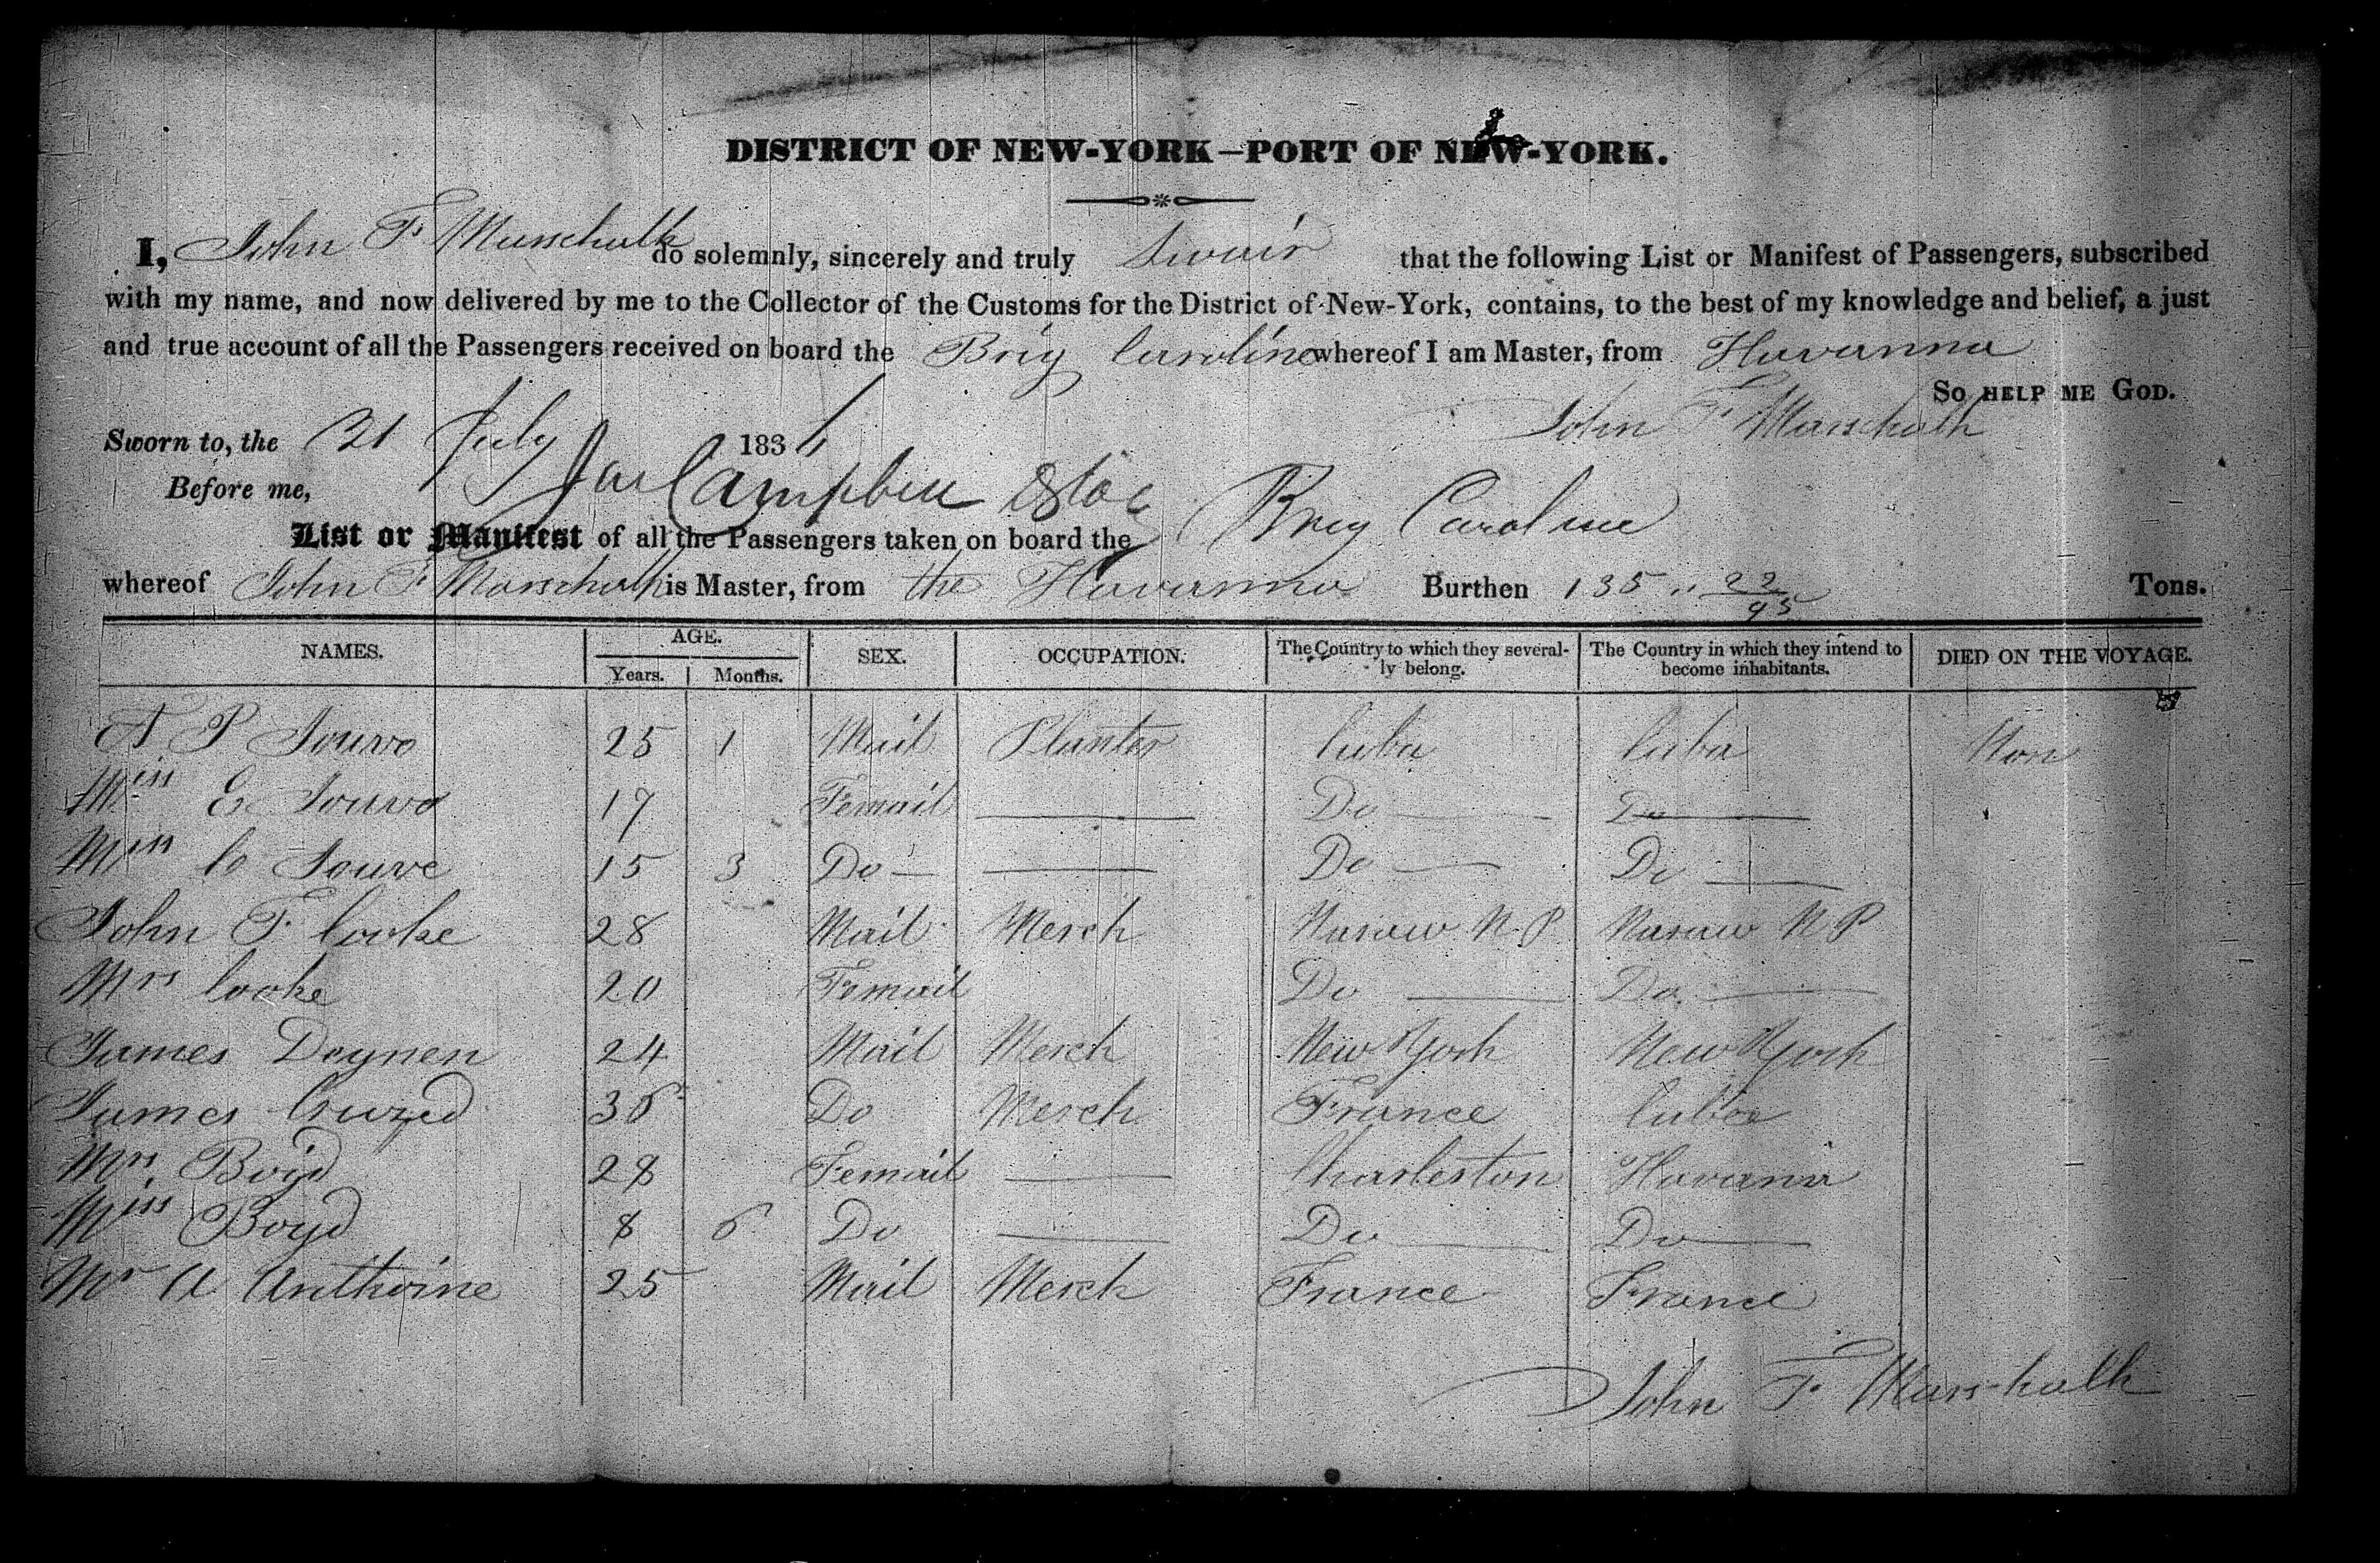 DISTRICT OF NEW-YORK—PORT OF NEW-YORK.
I, John F Marschalk do solemnly, sincerely and truly Swair that the following List or Manifest of Passengers, subscribed
with my name, and now delivered by me to the Collector of the Customs for the District of New-York, contains, to the best of my knowledge and belief, a just
and true account of all the Passengers received on board the Brig Caroline whereof I am Master, from Havanna
So HELP ME GOD.
Sworn to, the 21 July 1831 John F Marschalk
Before me, Campbell
List or Manifest of all the Passengers taken on board the Brig Caroline
whereof John F Marschalk is Master, from the Havanna Burthen 135 " 22/95 Tons.
NAMES. AGE. SEX. OCCUPATION. The Country to which they several-ly belong. The Country in which they intend to become inhabitants. DIED ON THE VOYAGE.
Years. Months.
P Jouve 25 1 Mail Planter Cuba Cuba Non
Miss E Jouve 17 Femail Do Do
Miss C Jouve 15 3 Do Do Do
John F Cooke 28 Mail Merch Nasaw N.P Nasaw N P
Mrs Cooke 20 Femail Do Do
James Deynen 24 Mail Merch New York New York
James 36 Do Merch France Cuba
Mrs Boyd 28 Femail Charleston Havana
Miss Boyd 8 6 Do Do Do
Mr A Anthoine 25 Mail Merch France France
John F Marschalk